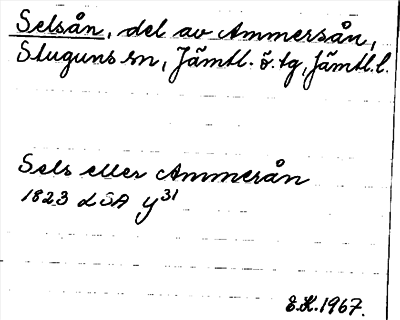 Selsån, del av Ammersån,
Stuguns sn, Jämtl. ö. tg, Jämtl. l.
Sels eller Ammerån
1823 LSA y31
E.H. 1967.